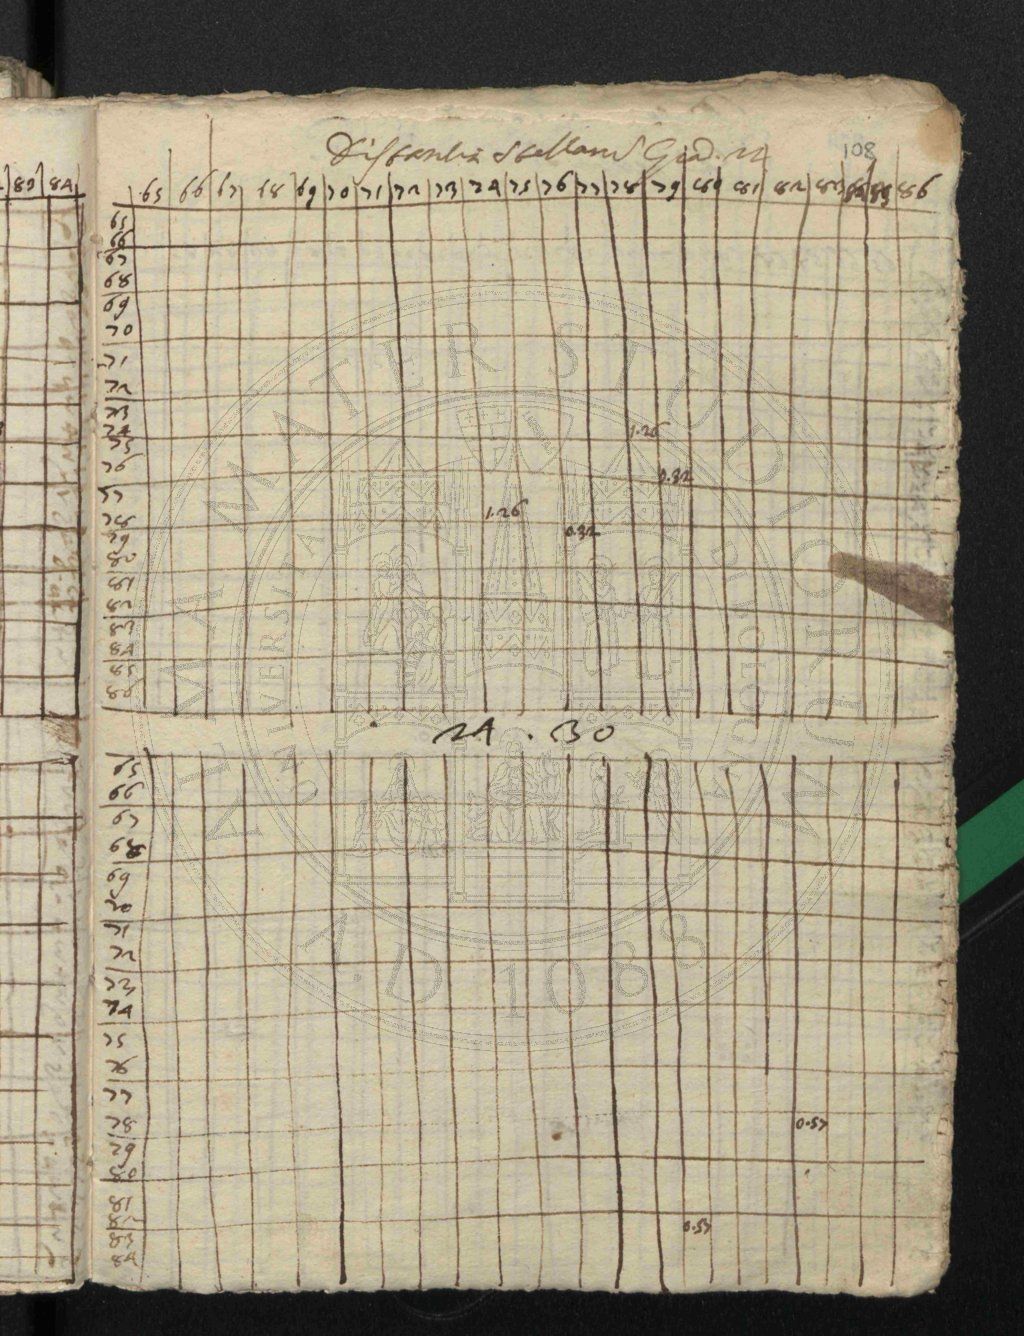 108
83 84
65 66 67 68 69 70 71 72 73 74 75 76 77 78 79 80 81 82 83 84 85 86
65
66
67
68
69
70
71
72
73
74
75
76
77
78
79
80
81
82
83
84
85
86
1.26
0.32
1.26
0.32
24 . 30
65
66
67
68
69
70
71
72
73
74
75
76
77
78
79
80
81
82
83
84
0.57
0.57
ALMA MATER STUDIORUM
A.D. 1088